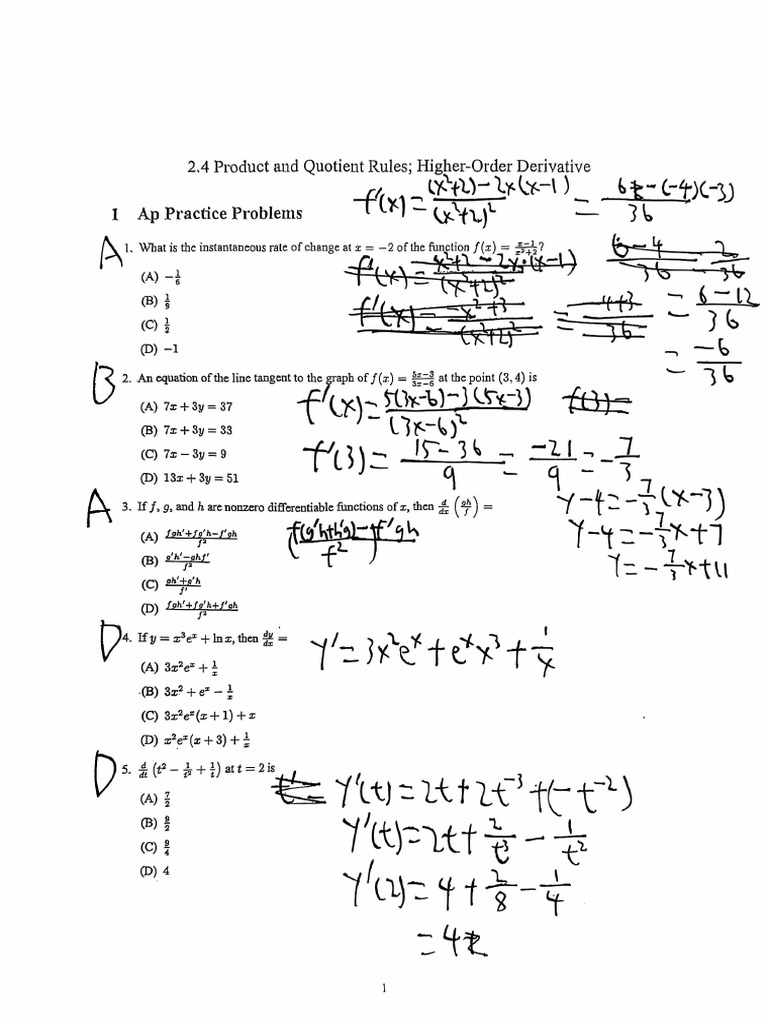 2.4 Product and Quotient Rules; Higher-Order Derivative
1 Ap Practice Problems
f'(x) = ((x²+2) - 2x(x-1))/(x²+2)² = (6 - (-4)(-3))/36
A 1. What is the instantaneous rate of change at x = −2 of the function f(x) = (x−1)/(x²+2)?
(A) −1/6
(B) 1/9
(C) 1/2
(D) −1
= (6-12)/36
= -6/36
B 2. An equation of the line tangent to the graph of f(x) = (5x−3)/(3x−6) at the point (3, 4) is
(A) 7x + 3y = 37
(B) 7x + 3y = 33
(C) 7x − 3y = 9
(D) 13x + 3y = 51
f'(x) = (5(3x-6) - 3(5x-3))/(3x-6)²
f'(3) = (15-36)/9 = -21/9 = -7/3
y-4 = -7/3(x-3)
y-4 = -7/3x+7
y = -7/3x+11
A 3. If f, g, and h are nonzero differentiable functions of x, then d/dx (gh/f) =
(A) (fgh′+fg′h−f′gh)/f²
(B) (g′h′−ghf′)/f²
(C) (gh′+g′h)/f′
(D) (fgh′+fg′h+f′gh)/f²
(f(g'h+h'g) - f'gh)/f²
D 4. If y = x³eˣ + ln x, then dy/dx =
(A) 3x²eˣ + 1/x
(B) 3x² + eˣ − 1/x
(C) 3x²eˣ(x + 1) + x
(D) x²eˣ(x + 3) + 1/x
y' = 3x²eˣ + eˣx³ + 1/x
D 5. d/dt (t² − 1/t² + 1/t) at t = 2 is
(A) 7/2
(B) 9/2
(C) 9/4
(D) 4
y'(t) = 2t + 2t⁻³ + (-t⁻²)
y'(t) = 2t + 2/t³ - 1/t²
y'(2) = 4 + 2/8 - 1/4
= 4
1